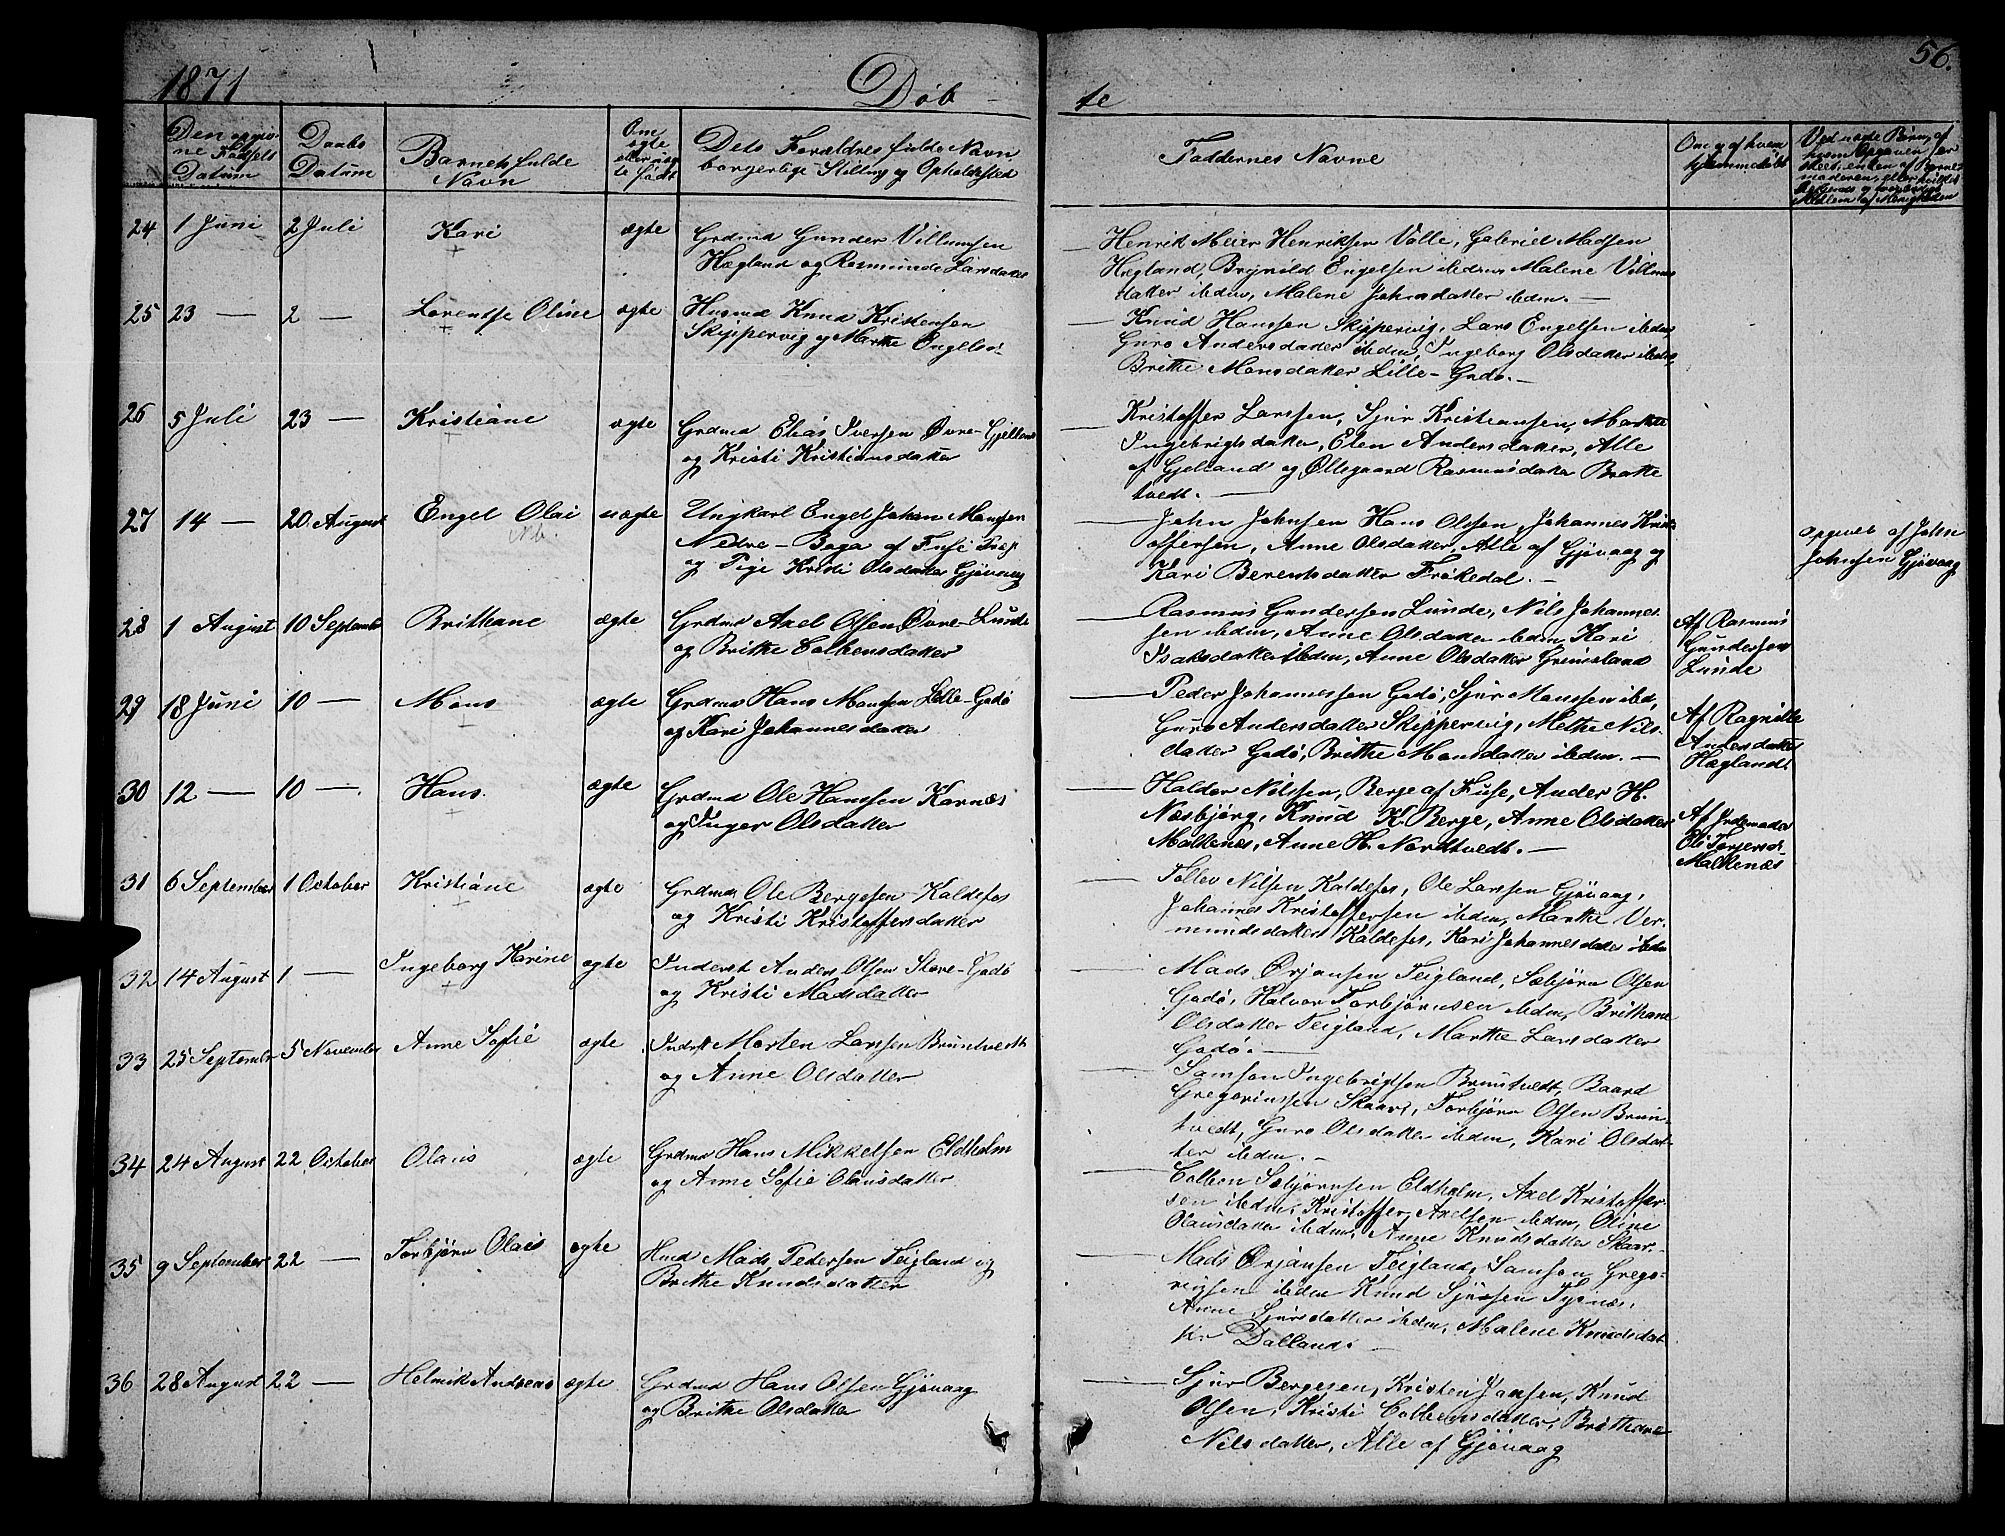 1871 Døbte 56.
Den opgivne Fødsels Datum
Daabs Datum
Barnets fulde Navn
Om ægte eller uægte født
Dets Forældres fulde Navn borgerlige Stilling og Opholdssted
Faddernes Navne
Om og af hvem hjemmedøbt
Ved uægte Børn, af hvem Opgaven er skeet, enten af Barnemoderen, eller hvilket
24 1 Juni 2 Juli Kari ægte Grdmd Gunder Villumsen
Hægland og Rasmunde Larsdatter
Henrik Meier Henriksen Valle, Gabriel Madsen
Hægland, Brynild Engelsen ibidem, Malene Villums
datter ibdm, Malene Johnsdatter ibdm. —
25 23 — 2 — Lorendse Oline ægte Husmd Knud Kristensen
Skippervig og Marthe Engelsd.
Knud Hanssen Skippervig, Lars Engelsen ibdm,
Guro Andersdatter ibdm, Ingeborg Olsdatter ibdm,
Brithe Monsdatter Lille-Godø. —
26 5 Juli 23 — Kristiane ægte Grdmd Elias Iversen Øvre-Gjelland
og Kristi Kristiansdatter
Kristoffer Larssen, Sjur Kristiansen, Marthe
Ingebrigtsdatter, Elen Andersdatter, Alle
af Gjelland og Øllegaard Rasmusdatter Bratte
tvedt. —
27 14 — 20 August Engel Olai uægte Ungkarl Engel Johan Monssen
Nb.
Nedre-Boga af Fuse Præst
og Pige Kristi Olsdatter Gjøvaag
John Johnsen Hans Olsen, Johannes Krist
offersen, Anne Olsdatter, Alle af Gjøvaag og
Kari Berentsdatter Frøkedal. —
opgivet af John
Johnsen Gjøvaag
28 1 August 10 September Brithane ægte Grdmd Axel Olsen Øvre-Lunde
og Brithe Colbensdatter
Rasmus Gundersen Lunde, Nils Johannes
sen ibdm, Anne Olsdatter ibdm, Kari
Isaksdatter ibdm, Anne Olsdatter Grimsland
Af Rasmus
Gundersen
Lunde
29 18 Juni 10 — Mons ægte Grdmd Hans Monsen Lille-Godø
og Kari Johannesdatter
Peder Johannessen Godø, Sjur Monssen ibd,
Guro Andersdatter Skippervig, Methe Nils-
datter Godø, Brithe Monsdatter ibdm. —
Af Ragnilde
Andersdatter
Hægland
30 12 — 10 — Hans. ægte Grdmd Ole Hanssen Kornæs
og Inger Olsdatter
Haldor Nilssen, Berge af Fuse, Ander H.
Næsbjørg, Knud K. Berge, Anne Olsdatter
Malkenes, Anne H. Nordtvedt. —
Af Jordemoder
Malkenæs
31 6 September 1 October Kristiane ægte Grdmd Ole Bergesen Kaldefos
og Kristi Kristoffersdatter
Tollev Nilsen Kaldefos, Ole Larssen Gjøvaag,
Johannes Kristoffersen ibdm, Marthe Ver
mundsdatter Kaldefos, Kari Johannesdatter ibdm
32 14 August 1 — Ingeborg Karine ægte Inderst Anders Olsen Store-Godø
og Kristi Madsdatter
Mads Ørjansen Teigland, Sæbjørn Olsen
Godø, Halvor Torbjørnsen ibdm, Brithane
Olsdatter Teigland, Marthe Larsdatter
Godø. —
33 25 September 5 November Anne Sofie ægte Inderst Morten Larssen Bruntvedt
og Anne Olsdatter
Samson Ingebrigtsen Bruntvedt, Baard
Gregoriussen Skaar, Torbjørn Olsen Brun-
tvedt, Guro Olsdatter ibdm, Kari Olsdat-
ter ibdm. —
34 24 August 22 October Olaus ægte Grdmd Hans Mikkelsen Eldholm
og Anne Sofie Olausdatter
Colben Sæbjørnsen Eldholm, Axel Kristoffer
sen ibdm, Kristoffer Axelsen ibdm, Oline
Olausdatter ibdm, Anne Knudsdatter Skaar.
35 9 September 22 — Torbjørn Olais ægte Hmd Mads Pedersen Teigland og
Brithe Knudsdatter
Mads Ørjansen Teigland, Samson Grego-
riussen ibdm Knud Sjursen Tysnæs,
Anne Sjursdatter ibdm, Malene Knudsdat
ter Dalland.
36 28 August 22 — Helmik Andreas ægte Grdmd Hans Olsen Gjøvaag
og Brithe Olsdatter
Sjur Bergesen, Kristen Jansen, Knud
Olsen, Kristi Colbensdatter, Brithane
Nilsdatter, Alle af Gjøvaag